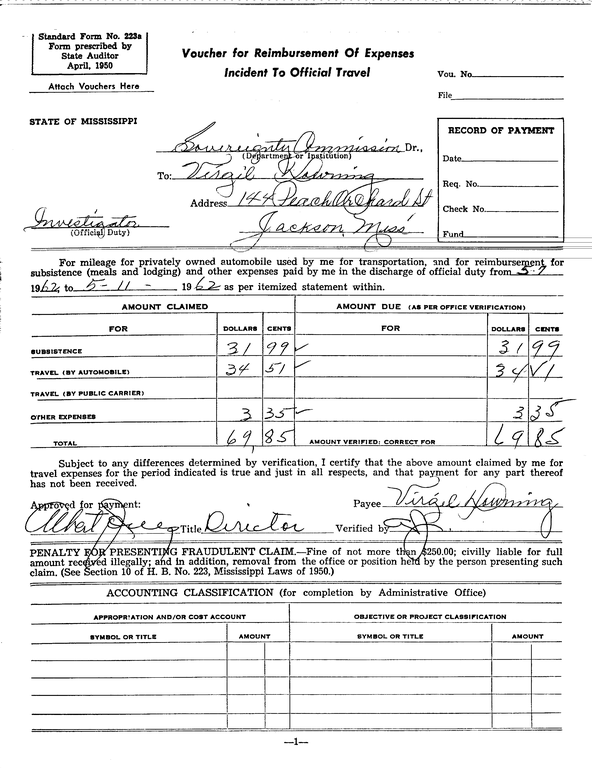 Standard Form No. 223a
Form prescribed by
State Auditor
April, 1950
Attach Vouchers Here
Voucher for Reimbursement Of Expenses
Incident To Official Travel
Vou. No.
File
STATE OF MISSISSIPPI
Sovereignty Commission Dr.,
(Department or Institution)
To: Virgil Downing
Address 144 Peach Orchard St
Jackson, Miss
Investigator
(Official Duty)
RECORD OF PAYMENT
Date
Req. No.
Check No.
Fund
For mileage for privately owned automobile used by me for transportation, and for reimbursement for
subsistence (meals and lodging) and other expenses paid by me in the discharge of official duty from 5-7
1962, to 5-11- 1962 as per itemized statement within.
AMOUNT CLAIMED AMOUNT DUE (AS PER OFFICE VERIFICATION)
FOR DOLLARS CENTS FOR DOLLARS CENTS
SUBSISTENCE 31 99 ✓ 31 99
TRAVEL (BY AUTOMOBILE) 34 51 ✓ 34
TRAVEL (BY PUBLIC CARRIER)
OTHER EXPENSES 3 35 ✓ 3 35
TOTAL 69 85 AMOUNT VERIFIED: CORRECT FOR 69 85
Subject to any differences determined by verification, I certify that the above amount claimed by me for
travel expenses for the period indicated is true and just in all respects, and that payment for any part thereof
has not been received.
Approved for payment: Payee Virgil Downing
Albert Title Director Verified by
PENALTY FOR PRESENTING FRAUDULENT CLAIM.—Fine of not more than $250.00; civilly liable for full
amount received illegally; and in addition, removal from the office or position held by the person presenting such
claim. (See Section 10 of H. B. No. 223, Mississippi Laws of 1950.)
ACCOUNTING CLASSIFICATION (for completion by Administrative Office)
APPROPRIATION AND/OR COST ACCOUNT OBJECTIVE OR PROJECT CLASSIFICATION
SYMBOL OR TITLE AMOUNT SYMBOL OR TITLE AMOUNT
—1—